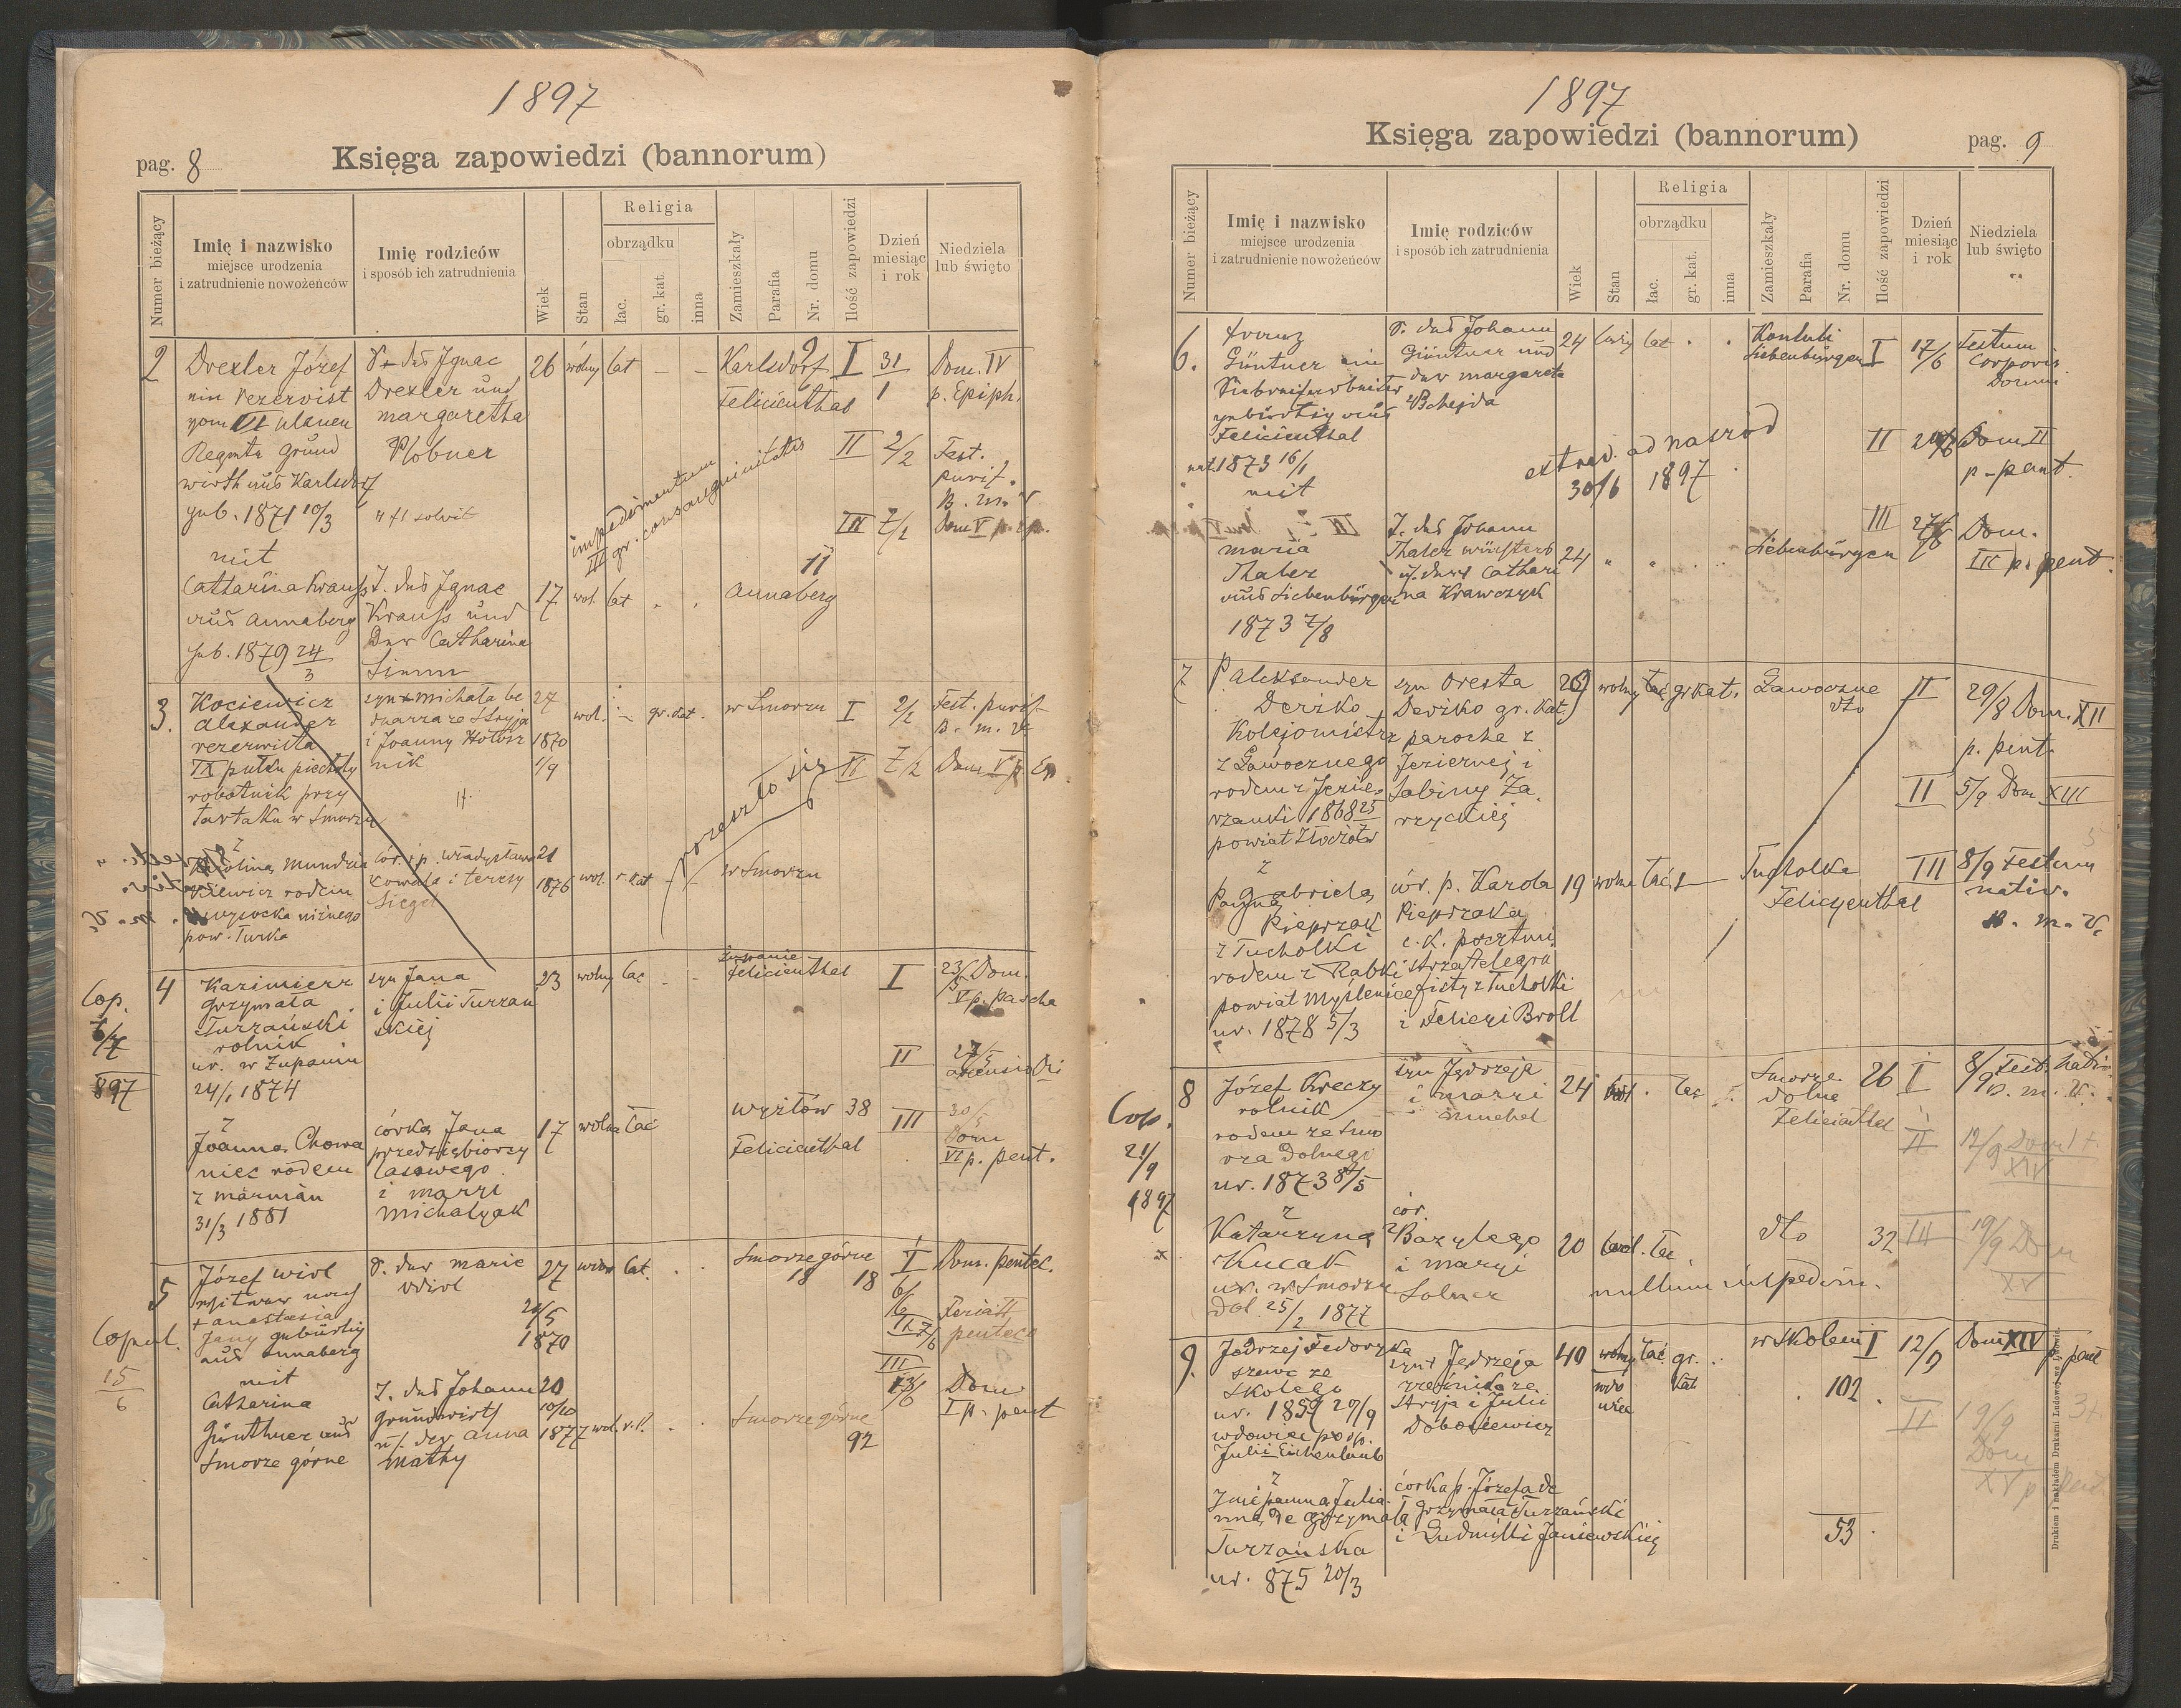 1897
Księga zapowiedzi (bannorum)
pag. 8
Numer bieżący
Imię i nazwisko
miejsce urodzenia
i zatrudnienie nowożeńców
Imię rodziców
i sposób ich zatrudnienia
Wiek
Stan
Religia
obrządku
łac.
gr. kat.
inna
Zamieszkały
Parafia
Nr. domu
Ilość zapowiedzi
Dzień
miesiąc
i rok
Niedziela
lub święto
2
Drexler Józef
ein Rezervist
vom VI Ulanen
Regmts Grund
wirth aus Karlsdorf
geb. 1871 10/3
mit
Catharina Krauss
aus Annaberg
geb. 1879 24/3
S. + des Ignac
Drexler und
Margaretha
Plobner
T. des Ignac
Krauss und
Der Catharina
26 wolny lat — —
Karlsdorf 9
Felicienthal
I 31/1 Dom. IV
p. Epiph.
II 2/2 Fest.
purif.
B. M. V.
III 7/2 Dom V p. Ep.
impedimentum
III gr. consanguinitatis
17 wol. lat
11
Annaberg
3.
Kociewicz
Alexander
rezerwista
IX pułku piechoty
robotnik przy
tartaku w Smorzu
z
Karoliną
rodem
z Wysocka niżnego
pow. Turka
syn + Michała be
dnarza ze Stryja
i Joanny Hołosz
nik
cór. śp. Władysława
Kowala i Teresy
Siegel
27
1870
1/9
wol. — gr. kat.
w Smorzu
I 2/2 Fest. purif
B. M. V.
II 7/2 Dom V p. Ep.
rozeszło się
21
1876
wol. r. kat
w Smorzu
4
Cop.
6/7
897
Kazimierz
Grzymała
Turzański
rolnik
ur. w Żupaniu
24/1 1874
z
Joanną Chowa
niec rodem
z Màrmàn
31/3 1881
syn Jana
i Julii Turzań
skiej
córka Jana
przedsiębiorcy
lasowego
i Maryi
Michalyak
23 wolny łac
Żupanie
Felicienthal
I 23/5 Dom.
V p. Pascha
II 27/5
Ascensio Dni
III 30/5
Dom
VI p. pent.
17 wolna łac
Wyżłów 38
Felicienthal
5
Copul.
15
6
Józef Wirl
Witwer nach
+ Anastasia
Jany gebürtig
aus Annaberg
mit
Catharina
Günthner aus
Smorze górne
S. der Marie
Wirl
T. des Johann
Grundwirth
u. der Anna
Mathy
27 wdow lat.
21/5
1870
Smorze górne
18 18
I Dom. pentec.
6/6
Feria II
II 7/6 pentec
III
13/6 Dom
I p. pent
20
10/10
1877 wol. r. l.
Smorze górne
92
1897
Księga zapowiedzi (bannorum)
pag. 9
Numer bieżący
Imię i nazwisko
miejsce urodzenia
i zatrudnienie nowożeńców
Imię rodziców
i sposób ich zatrudnienia
Wiek
Stan
Religia
obrządku
łac.
gr. kat.
inna
Zamieszkały
Parafia
Nr. domu
Ilość zapowiedzi
Dzień
miesiąc
i rok
Niedziela
lub święto
6.
Franz
Güntner ein
gebürtig aus
Felicienthal
nat. 1873 16/1
mit
Maria
Thaler
aus Siebenbürgen
1873 7/8
S. des Johann
Güntner und
der Margareta
Bohejda
T. des Johann
Thaler
u. der Cathari
na Krawczyk
24 ledig lat
Siebenbürgen
I 17/6 Festum
Corporis
Domini
II 20/6 Dom II
p. pent.
extrad. ad Naszód
30/6 1897
III 27/6 Dom.
III p. pent.
24
Siebenbürgen
7
P. Aleksander
Deriko
Kolejomistrz
z Ławocznego
rodem z Jezie
rzanki 1868 25
powiat Złoczów
z
Panną Gabrielą
Pieprzak
z Tucholki
rodem z Rabki
powiat Myślenice
ur. 1878 5/3
syn Oresta
Deriko gr. kat.
parocha z
Jeziernej i
Sabiny Za
rzyckiej
cór. p. Karola
Pieprzaka
c. k. poczmi
strza telegra
fisty z Tucholki
i Felicyi Broll
29 wolny łac gr kat.
Ławoczne
dto
II 29/8 Dom. XII
p. pent.
II 5/9 Dom XIII
19 wolna łac
Tucholka
Felicyenthal
III 8/9 Festum
nativ.
B. M. V.
8
Cop.
21/9
1897
Józef Kreczy
rolnik
rodem ze Smo
rza Dolnego
ur. 1873 8/5
z
Katarzyną
Kucak
ur. w Smorzu
Dol 25/2 1877
syn Jędrzeja
i Maryi
Smuhel
cór.
Bazylego
i Maryi
Solner
24 wol. łac
Smorze
dolne
Felicienthal
26 I 8/9 Fest. nativ.
B. M. V.
II 12/9 Dom
XIV
20 wol. łac
dto 32
III 19/9 Dom
XV
nullum impedim.
9.
Jędrzej Fedoryka
szewc ze
Skolego
ur. 1859 20/9
wdowiec po śp.
Julii
z
Julia
nną de Grzymała
Turzańska
ur. 875 20/3
syn + Jędrzeja
rzeźnika ze
Stryja i Julii
Dobosiewicz
córka p. Józefa de
Grzymała Turzański
i Ludmiłli Janiewskiej
40 wolny łac. gr.
wdo
wiec
kat
w Skolem
102
I 12/9 Dom XIV p. pent
II 19/9
Dom
XV p. pent.
53
Drukiem i nakładem Drukarni Ludowej we Lwowie.